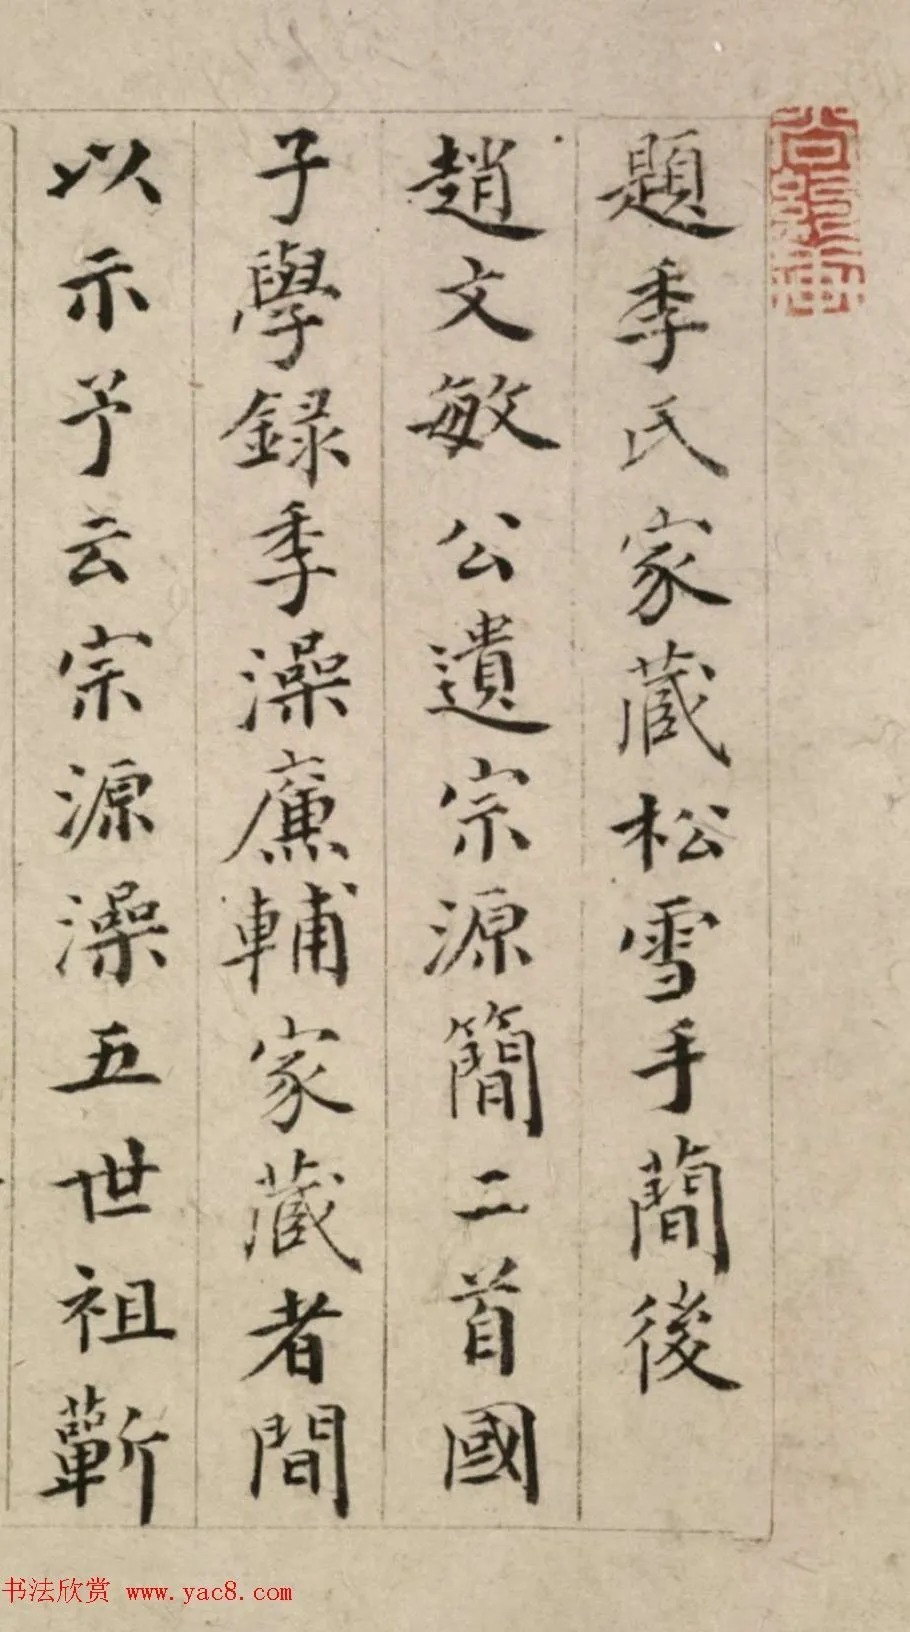 題季氏家藏松雪手蕑後
趙文敏公遺宗源簡二首國
子學録季澡廉輔家藏者間
以示予云宗源澡五世祖蘄
书法欣赏 www.yac8.com